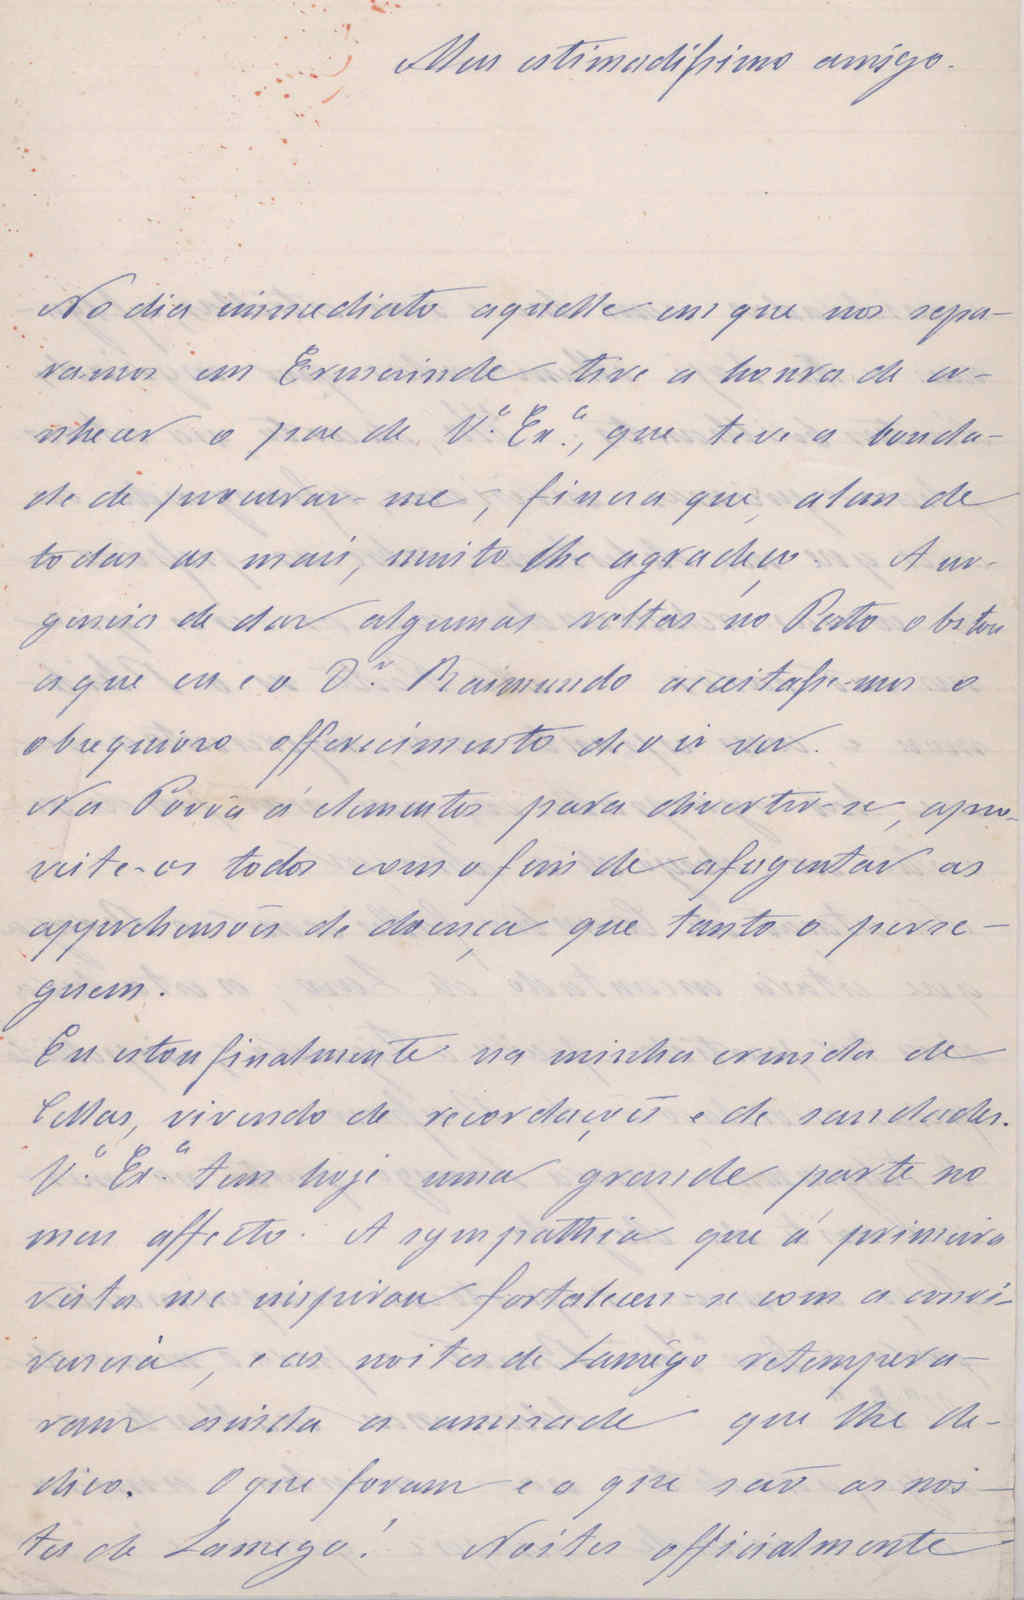 Meu estimadissimo amigo.
No dia immediato aquelle em que nos sepa-
ramos em Ermezinde tive a honra de co-
nhecer o pae de V.ª Ex.ª, que teve a bonda-
de de procurar-me, fineza que, alem de
todas as mais, muito lhe agradeço. A ur-
gencia de dar algumas voltas no Porto obstou
a que eu e o D.r Raimundo aceitasse-mos o
obsequioso offerecimento de o ir ver.
Na Povôa á elementos para divertir-se, apro-
veite-os todos com o fim de afugentar as
apprehensões de doença que tanto o perse-
guem.
Eu estou finalmente na minha ermida de
Cellas, vivendo de recordações e de saudades.
V.ª Ex.ª tem hoje uma grande parte no
meu affecto. A sympathia que á primeira
vista me inspirou fortaleceu-se com a convi-
vencia, e as noites de Lamêgo retempera-
ram ainda a amizade que lhe de-
dico. O que foram e o que são as noi-
tes de Lamego! Noites officialmente